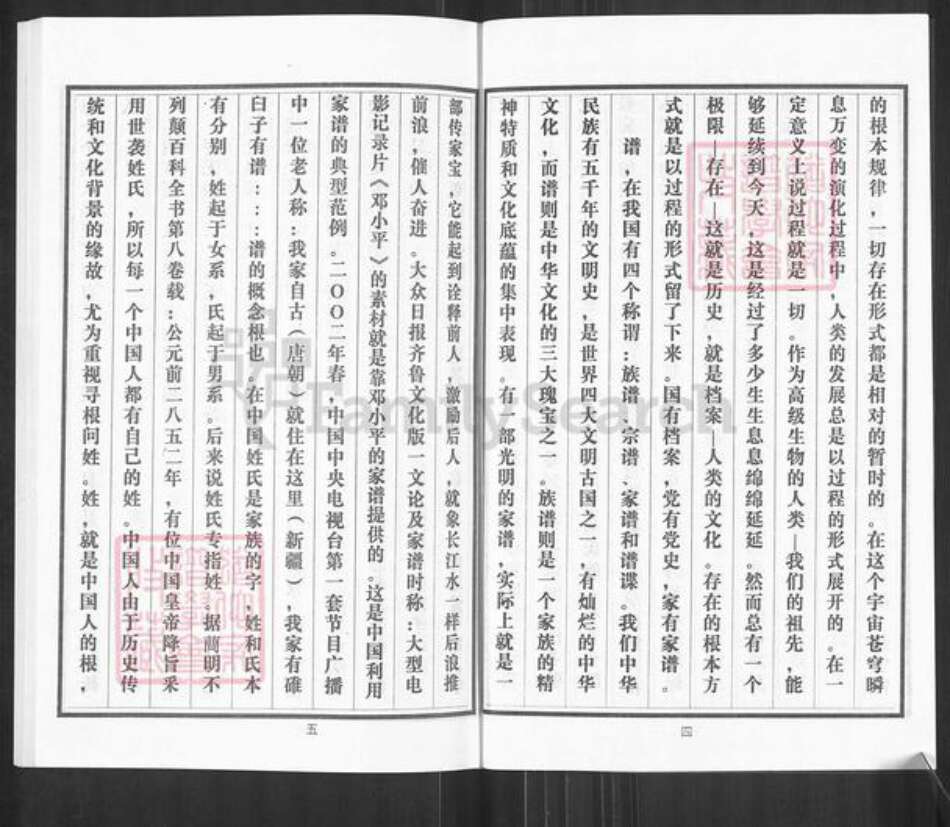 的根本规律，一切存在形式都是相对的暂时的。在这个宇宙苍穹瞬
息万变的演化过程中，人类的发展总是以过程的形式展开的。在一
定意义上说过程就是一切。作为高级生物的人类—我们的祖先，能
够延续到今天，这是经过了多少生生息息绵绵延延。然而总有一个
极限—存在—这就是历史，就是档案—人类的文化。存在的根本方
式就是以过程的形式留了下来。国有档案，党有党史，家有家谱。
谱，在我国有四个称谓：族谱、宗谱、家谱和谱谍。我们中华
民族有五千年的文明史，是世界四大文明古国之一，有灿烂的中华
文化，而谱则是中华文化的三大瑰宝之一。族谱则是一个家族的精
神特质和文化底蕴的集中表现。有一部光明的家谱，实际上就是一
四
部传家宝，它能起到诠释前人，激励后人，就象长江水一样后浪推
前浪，催人奋进。大众日报齐鲁文化版一文论及家谱时称：大型电
影记录片《邓小平》的素材就是靠邓小平的家谱提供的。这是中国利用
家谱的典型范例。二〇〇二年春，中国中央电视台第一套节目广播
中一位老人称：我家自古（唐朝）就住在这里（新疆），我家有碓
臼子有谱：：谱的概念根也。在中国姓氏是家族的字，姓和氏本
有分别，姓起于女系，氏起于男系。后来说姓氏专指姓。据蔄明不
列颠百科全书第八卷载：公元前二八五二年，有位中国皇帝降旨采
用世袭姓氏，所以每一个中国人都有自己的姓。中国人由于历史传
统和文化背景的缘故，尤为重视寻根问姓。姓，就是中国人的根，
五
FamilySearch